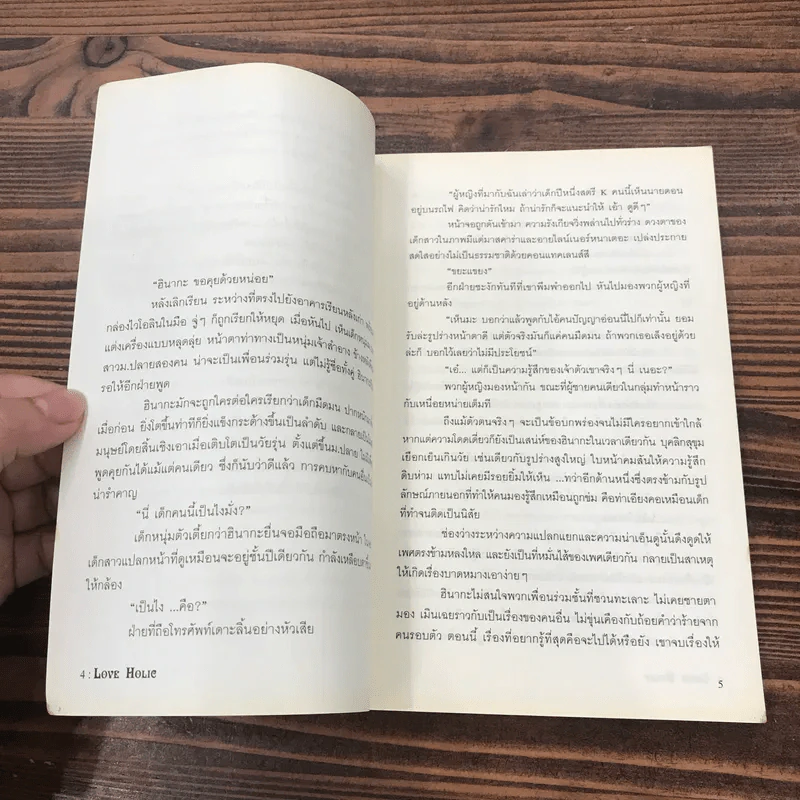 "ฮินากะ ขอคุยด้วยหน่อย"
หลังเลิกเรียน ระหว่างที่ตรงไปยังอาคารเรียนหลังเก่า
กล่องไวโอลินในมือ จู่ๆ ก็ถูกเรียกให้หยุด เมื่อหันไป เห็นเด็กหนุ่ม
แต่งเครื่องแบบหลุดลุ่ย หน้าตาท่าทางเป็นหนุ่มเจ้าสำอาง
สาวม.ปลายสองคน น่าจะเป็นเพื่อนร่วมรุ่น แต่ไม่รู้ชื่อทั้งคู่
รอให้อีกฝ่ายพูด
ฮินากะมักจะถูกใครต่อใครเรียกว่าเด็กมืดมน
เมื่อก่อน ยิ่งโตขึ้นท่าทีก็ยิ่งแข็งกระด้างขึ้นเป็นลำดับ และกลาย
มนุษย์โดยสิ้นเชิงเอาเมื่อเติบโตเป็นวัยรุ่น ตั้งแต่ขึ้นม.ปลาย
พูดคุยกันได้แม้แต่คนเดียว ซึ่งก็นับว่าดีแล้ว การคบหากับคนอื่น
น่ารำคาญ
"นี่ เด็กคนนี้เป็นไงมั่ง?"
เด็กหนุ่มตัวเตี้ยกว่าฮินากะยื่นจอมือถือมาตรงหน้า
เด็กสาวแปลกหน้าที่ดูเหมือนจะอยู่ชั้นปีเดียวกัน กำลังเหลือบตา
ให้กล้อง
"เป็นไง ...คือ?"
ฝ่ายที่ถือโทรศัพท์เดาะลิ้นอย่างหัวเสีย
4 : LOVE HOLIC
"ผู้หญิงที่มากับฉันเล่าว่าเด็กปีหนึ่งสตรี K คนนี้เห็นนายตอน
อยู่บนรถไฟ คิดว่าน่ารักไหม ถ้าน่ารักก็จะแนะนำให้ เอ้า ดูดีๆ"
หน้าจอถูกดันเข้ามา ความรังเกียจวิ่งพล่านไปทั่วร่าง ดวงตาของ
เด็กสาวในภาพมีแต่มาสคาร่าและอายไลน์เนอร์หนาเตอะ เปล่งประกาย
สดใสอย่างไม่เป็นธรรมชาติด้วยคอนแทคเลนส์สี
"ขยะแขยง"
อีกฝ่ายชะงักทันทีที่เขาพึมพำออกไป หันไปมองพวกผู้หญิงที่
อยู่ด้านหลัง
"เห็นมะ บอกว่าแล้วพูดกับไอ้คนปัญญาอ่อนนี่ไปก็เท่านั้น ยอม
รับล่ะรูปร่างหน้าตาดี แต่ตัวจริงมันก็แค่คนมืดมน ถ้าพวกเธอเล็งอยู่ด้วย
ล่ะก็ บอกไว้เลยว่าไม่มีประโยชน์"
"เอ๋... แต่ก็เป็นความรู้สึกของเจ้าตัวเขาจริงๆ นี่ เนอะ?"
พวกผู้หญิงมองหน้ากัน ขณะที่ผู้ชายคนเดียวในกลุ่มทำหน้าราว
กับเหนื่อยหน่ายเต็มที
ถึงแม้ตัวตนจริงๆ จะเป็นข้อบกพร่องจนไม่มีใครอยากเข้าใกล้
หากแต่ความโดดเดี่ยวก็ยังเป็นเสน่ห์ของฮินากะในเวลาเดียวกัน บุคลิกสุขุม
เยือกเย็นเกินวัย เช่นเดียวกับรูปร่างสูงใหญ่ ใบหน้าคมสันให้ความรู้สึก
ดิบห่าม แทบไม่เคยมีรอยยิ้มให้เห็น ...ทว่าอีกด้านหนึ่งซึ่งตรงข้ามกับรูป
ลักษณ์ภายนอกที่ทำให้คนมองรู้สึกเหมือนถูกข่ม คือท่าเอียงคอเหมือนเด็ก
ที่ทำจนติดเป็นนิสัย
ช่องว่างระหว่างความแปลกแยกและความน่าเอ็นดูนั้นดึงดูดให้
เพศตรงข้ามหลงใหล และยังเป็นที่หมั่นไส้ของเพศเดียวกัน กลายเป็นสาเหตุ
ให้เกิดเรื่องบาดหมางเอาง่ายๆ
ฮินากะไม่สนใจพวกเพื่อนร่วมชั้นที่ชวนทะเลาะ ไม่เคยชายตา
มอง เมินเฉยราวกับเป็นเรื่องของคนอื่น ไม่ขุ่นเคืองกับถ้อยคำว่าร้ายจาก
คนรอบตัว ตอนนี้ เรื่องที่อยากรู้ที่สุดคือจะไปได้หรือยัง เขาจบเรื่องให้
5